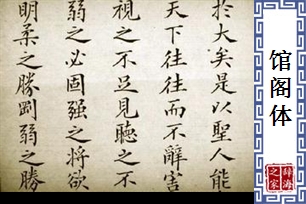 於大矣是以聖人能
天下往往而不辭害
視之不足見聽之不
弱之必固强之将欲
明柔之勝剛弱之勝
馆阁体
辞海
之家